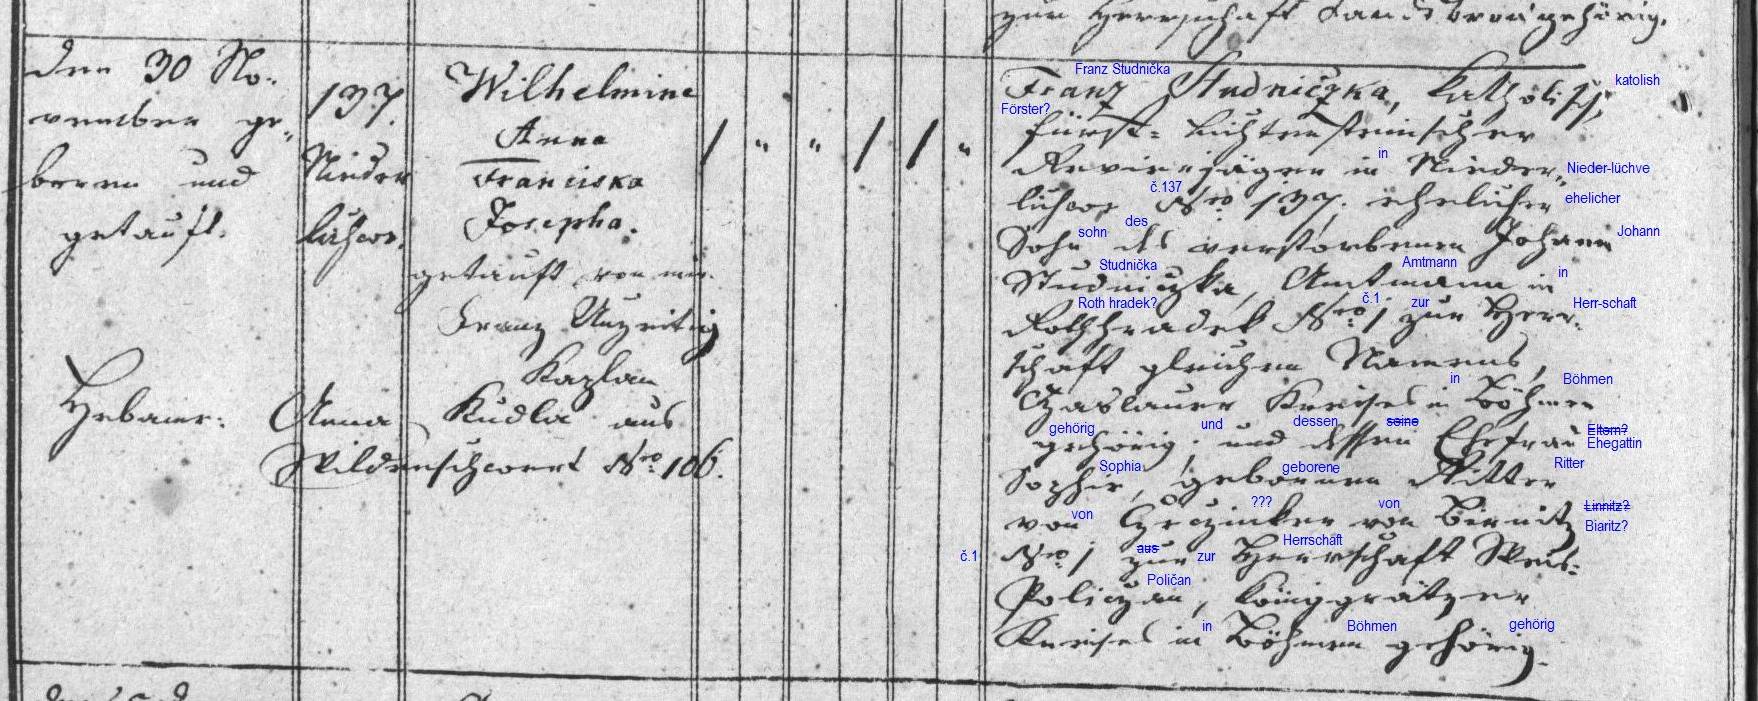 zur Herrschaft Landskron gehörig.
den 30 No-
vember ge-
boren und
getauft.
137.
Nieder
lichwe.
Wilhelmine
Anna
Franciska
Josepha.
getauft von mir.
Franz Unzeitig
Kaplan
Hebame: Anna Kudla aus
Wildenschwert Nro 106.
Franz Studniczka, katholisch,
fürst- Lichtensteinscher
Revierjäger in Nieder-
lichwe Nro 137. ehelicher
Sohn des verstorbenen Johann
Studniczka, Amtmann in
Rothhradek Nro 1 zur Herr-
schaft gleichen Namens,
Czaslauer Kreises in Böhmen
gehörig; und dessen Ehefrau
Sophie, gebornen Ritter
von
von
Nro 1 zur Herrschaft
Policzan, Königgrätzer
Kreises in Böhmen gehörig.
Franz Studnička
katolish
Förster?
in
Nieder-lüchve
č.137
ehelicher
sohn
des
Johann
Studnička
Amtmann
in
Roth hradek?
č.1
zur
Herr-schaft
in
Böhmen
gehörig
und
dessen
seine
Eltern?
Ehegattin
Sophia
geborene
Ritter
von
???
von
Linnitz?
Biaritz?
č.1
aus
zur
Herrschaft
Poličan
in
Böhmen
gehörig